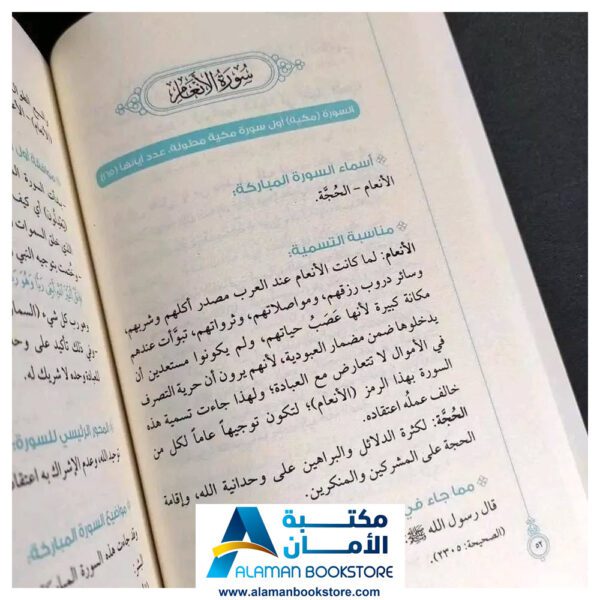 سُورَةُ الأَنْعَامِ
السورة (مكية) أول سورة مكية مطولة، عدد آياتها (١٦٥)
أسماء السورة المباركة:
الأنعام – الحُجَّة.
مناسبة التسمية:
الأنعام: لما كانت الأنعام عند العرب مصدر أكلهم وشربهم،
وسائر دروب رزقهم، ومواصلاتهم، وثرواتهم، تبوَّأت عندهم
مكانة كبيرة لأنها عَصَبُ حياتهم، ولم يكونوا مستعدين أن
يدخلوها ضمن مضمار العبودية، لأنهم يرون أن حرية التصرف
في الأموال لا تتعارض مع العبادة؛ ولهذا جاءت تسمية هذه
السورة بهذا الرمز (الأنعام)؛ لتكون توجيهاً عاماً لكل من
خالف عملُه اعتقاده.
الحُجَّة: لكثرة الدلائل والبراهين على وحدانية الله، وإقامة
الحجة على المشركين والمنكرين.
مما جاء في
قال رسول الله ﷺ
(الصحيحة: ٢٣٠٥).
٥٢
الذي خلق السموات
وهو رب كل شيء
للعبادة وحده لا شريك له.
المحور الرئيسي للسورة
توحيد الله، وعدم الإشراك به
مواضيع السورة المباركة:
وقد جاءت هذه السورة
مكتبة
الأمان
ALAMAN BOOKSTORE
www.alamanbookstore.com